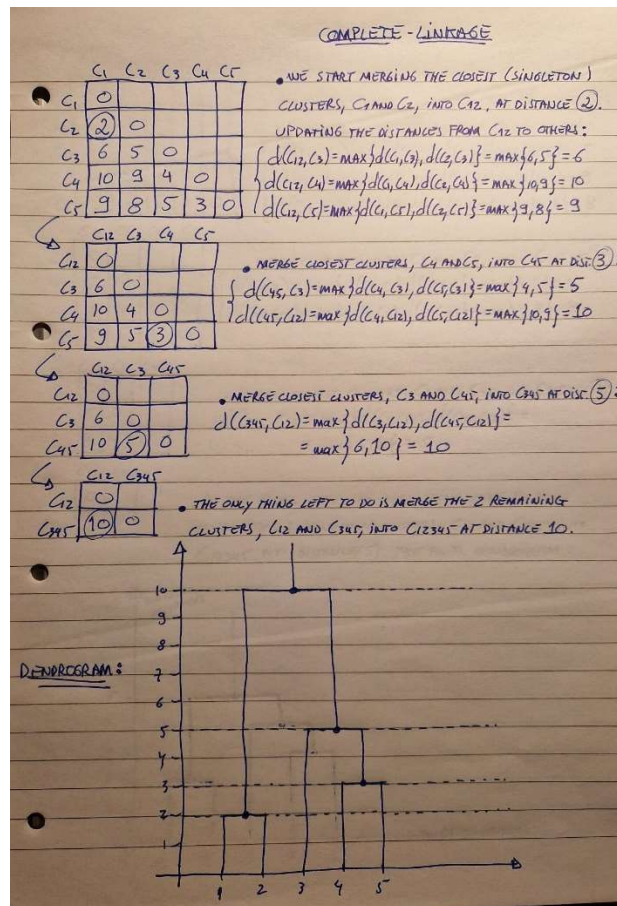 COMPLETE-LINKAGE
C1 C2 C3 C4 C5
C1 0
C2 2 0
C3 6 5 0
C4 10 9 4 0
C5 9 8 5 3 0
• WE START MERGING THE CLOSEST (SINGLETON)
CLUSTERS, C1 AND C2, INTO C12, AT DISTANCE 2.
UPDATING THE DISTANCES FROM C12 TO OTHERS:
{ d(C12,C3)=MAX{d(C1,C3),d(C2,C3)}=MAX{6,5}=6
d(C12,C4)=MAX{d(C1,C4),d(C2,C4)}=MAX{10,9}=10
d(C12,C5)=MAX{d(C1,C5),d(C2,C5)}=MAX{9,8}=9
C12 C3 C4 C5
C12 0
C3 6 0
C4 10 4 0
C5 9 5 3 0
• MERGE CLOSEST CLUSTERS, C4 AND C5, INTO C45 AT DIST. 3
{ d(C45,C3)=MAX{d(C4,C3),d(C5,C3)}=max{4,5}=5
d(C45,C12)=max{d(C4,C12),d(C5,C12)}=MAX{10,9}=10
C12 C3 C45
C12 0
C3 6 0
C45 10 5 0
• MERGE CLOSEST CLUSTERS, C3 AND C45, INTO C345 AT DIST. 5:
d(C345,C12)=max{d(C3,C12),d(C45,C12)}=
=max{6,10}=10
C12 C345
C12 0
C345 10 0
• THE ONLY THING LEFT TO DO IS MERGE THE 2 REMAINING
CLUSTERS, C12 AND C345, INTO C12345 AT DISTANCE 10.
DENDROGRAM:
10
9
8
7
6
5
4
3
2
1
1 2 3 4 5